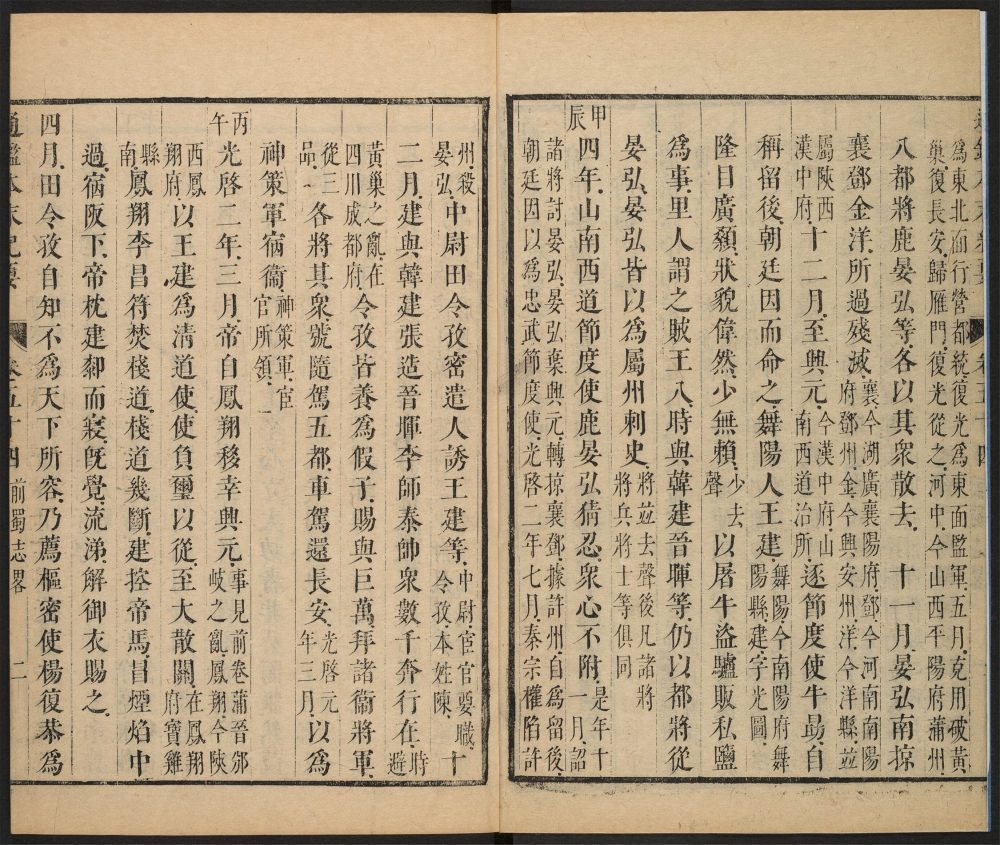 爲東北面行營都統復光爲東面監軍五月克用破黃
巢復長安歸雁門復光從之河中今山西平陽府蒲州
八都將鹿晏弘等各以其衆散去　十一月晏弘南掠
襄鄧金洋所過殘滅襄今湖廣襄陽府鄧今河南南陽
府鄧州金今興安州洋今洋縣並
屬陝西
漢中府十二月至興元今漢中府山
南西道治所逐節度使牛勗自
稱留後朝廷因而命之舞陽人王建舞陽今南陽府舞
陽縣建字光圖
隆目廣顙狀貌偉然少無賴少去
聲以屠牛盜驢販私鹽
爲事里人謂之賊王八時與韓建晉暉等仍以都將從
晏弘晏弘皆以爲屬州刺史將並去聲後凡諸將
將兵將士等俱同
甲
辰
四年山南西道節度使鹿晏弘猜忍衆心不附是年十
一月詔
諸將討晏弘晏弘棄興元轉掠襄鄧據許州自爲留後
朝廷因以爲忠武節度使光啓二年七月秦宗權陷許
州殺
晏弘中尉田令孜密遣人誘王建等中尉官官要職
令孜本姓陳十
二月建與韓建張造晉暉李師泰帥衆數千奔行在時
避
黃巢之亂在
四川成都府令孜皆養爲假子賜與巨萬拜諸衞將軍
從三
品各將其衆號隨駕五都車駕還長安光啓元
年三月以爲
神策軍宿衞神策軍官
官所領
丙
午
光啓二年三月帝自鳳翔移幸興元事見前卷蒲晉邠
岐之亂鳳翔今陝
西鳳
翔府以王建爲清道使使負璽以從至大散關在鳳翔
府寶雞
縣
南鳳翔李昌符焚棧道棧道幾斷建控帝馬冒煙焰中
過宿阪下帝枕建䣛而寢旣覺流涕解御衣賜之
四月田令孜自知不爲天下所容乃薦樞密使楊復恭爲
通鑑本末紀要
卷五十四
前蜀志畧
二